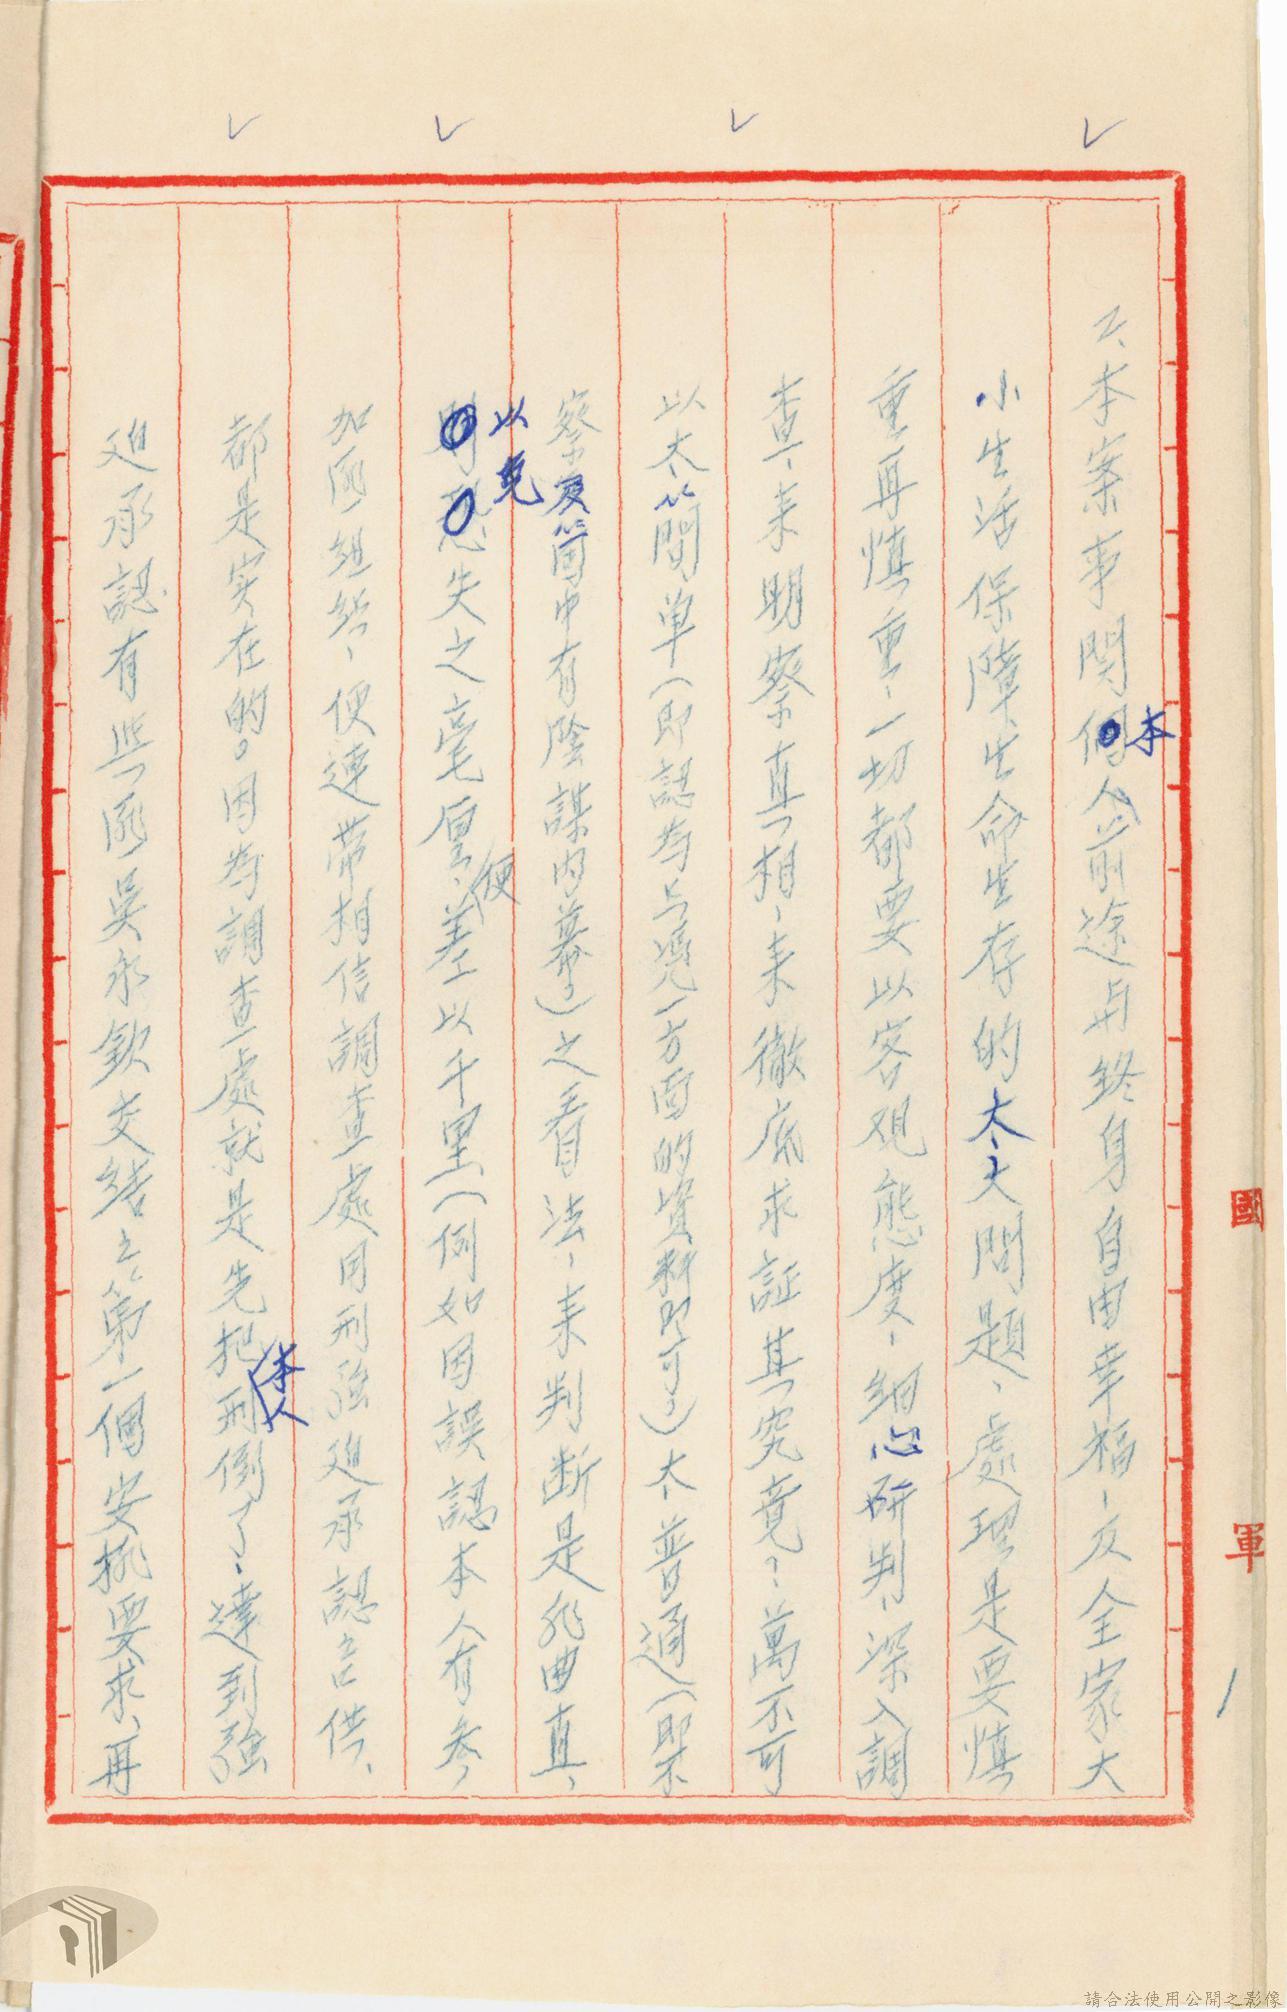 乙、本案事関本人前途与終身自由幸福、及全家大
小生活保障、生命生存的太大問題、處理是要慎
重再慎重、一切都要以客观態度、細心研判、深入調
查、来明察真相、来徹底求証其究竟、萬不可
以太簡单（即認為只凭一方面的資料即可。）太普通（即不
察及箇中有陰謀內幕。）之看法、来判断是非曲直、
以免失之毫厘、便差以千里、（例如因誤認本人有參
加匪組織、便連帶相信調查處用刑強廹承認口供、
都是实在的。因為調查處就是先把本人刑倒了、達到強
廹承認有與匪吳永欽交結之第一個安排要求、再
國軍
請合法使用公開之影像